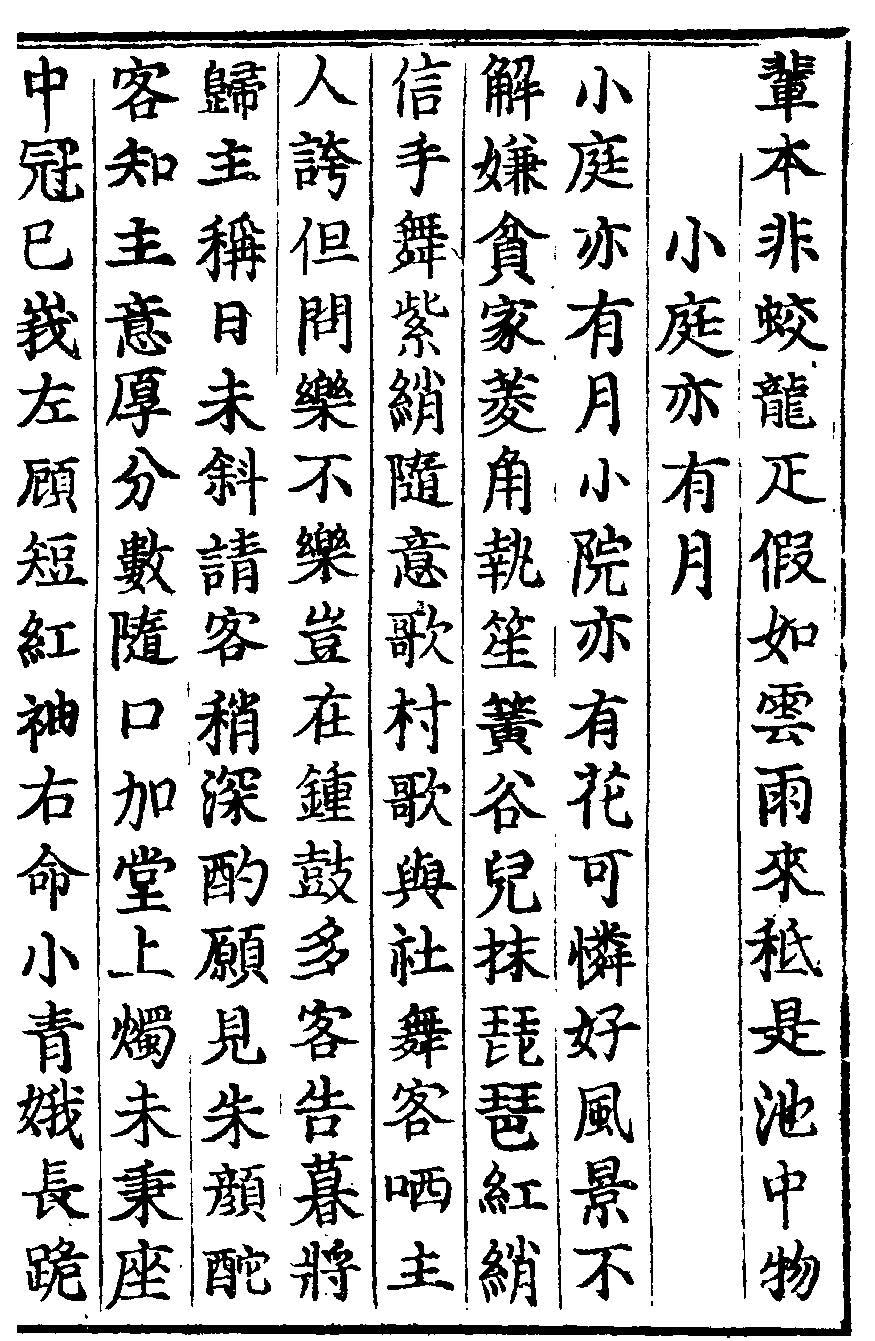 輩本非蛟龍疋假如雲雨來秪是池中物
小庭亦有月
小庭亦有月小院亦有花可憐好風景不
解嫌貧家菱角執笙簧谷兒抹琵琶紅綃
信手舞紫綃隨意歌村歌與社舞客哂主
人誇但問樂不樂豈在鍾鼓多客告暮將
歸主稱日未斜請客稍深酌願見朱顏酡
客知主意厚分數隨口加堂上燭未秉座
中冠已峩左顧短紅袖右命小青娥長跪